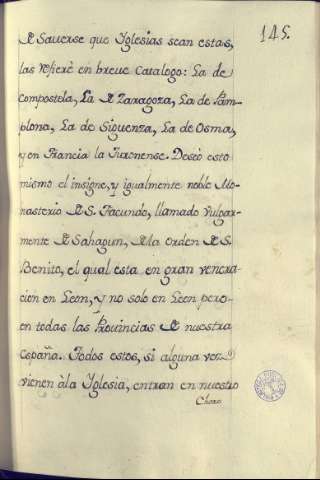 145.
de Saverse que Iglesias sean estas,
las refiere en breve Catalogo: La de
Compostela, La de Zaragoza, La de Pam-
plona, La de Siguenza, La de Osma,
y en Francia la Turonense. Deseò esto
mismo el insigne, y igualmente noble Mo-
nasterio de S. Facundo, llamado Vulgar-
mente de Sahagun, de la Orden de S.
Benito, el qual esta en gran venera-
cion en Leon, y no solo en Leon pero
en todas las Provincias de nuestra
España. Todos estos, si alguna vez
vienen à la Iglesia, entran en nuestro
Choro